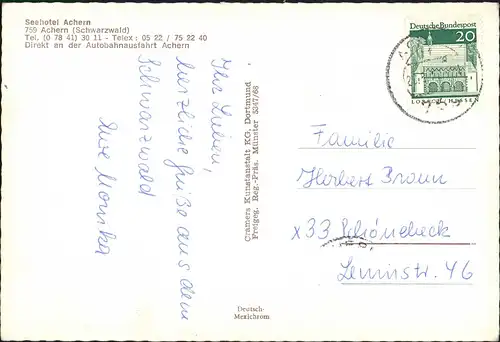 Seehotel Achern
759 Achern (Schwarzwald)
Tel. (0 78 41) 30 11 - Telex: 05 22 / 75 22 40
Direkt an der Autobahnausfahrt Achern
Ihr Lieben,
herzliche Grüße aus dem
Schwarzwald
Eure Monika
Cramers Kunstanstalt KG. Dortmund
Freigeg. Reg.-Präs. Münster 5247/68
Deutsch-
Mexichrom
Deutsche Bundespost
20
LORSCH/HESSEN
Familie
Herbert Braun
x33 Schönebeck
Leninstr. 46